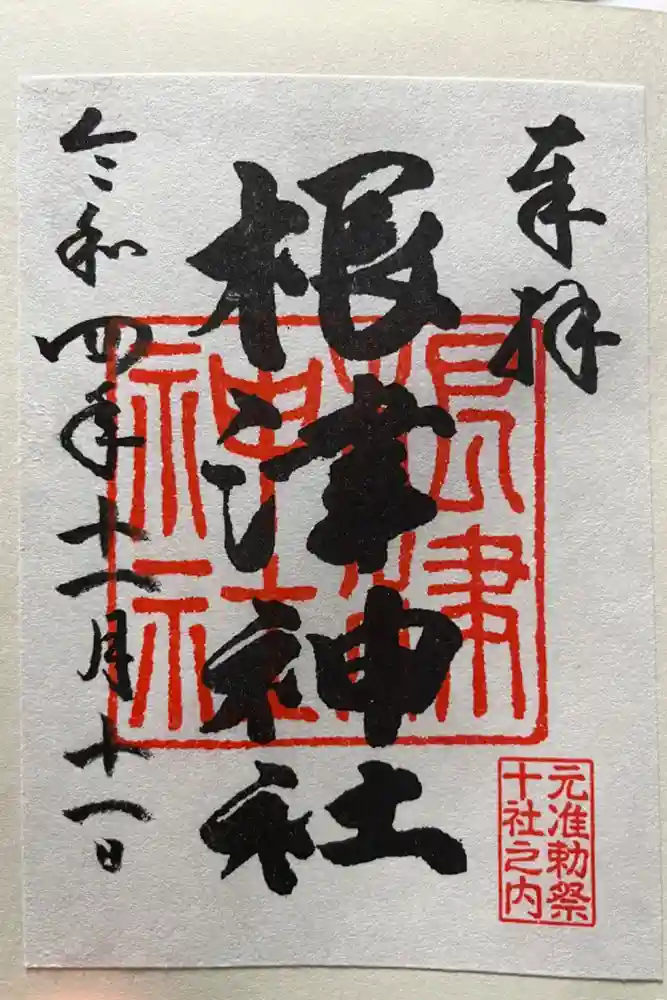 奉拝
根津神社
根津神社
令和四年十一月十一日
元准勅祭
十社之内